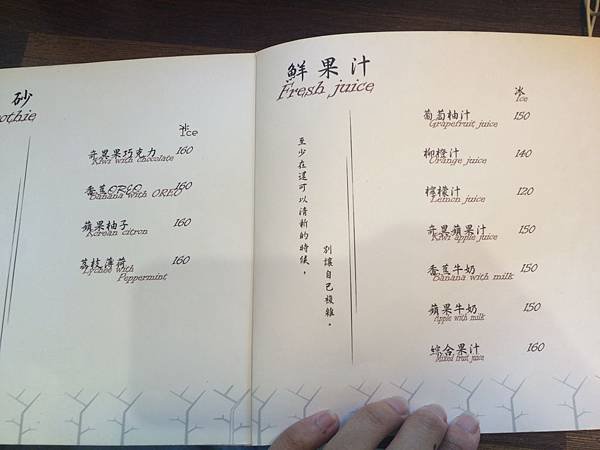 砂
othie
冰
Ice
奇異果巧克力 160
Kiwi with chocolate
香蕉OREO 160
Banana with OREO
蘋果柚子 160
Korean citron
荔枝薄荷 160
Lychee with
Peppermint
鮮果汁
Fresh juice
至少在還可以清新的時候，
別讓自己複雜。
冰
Ice
葡萄柚汁 150
Grapefruit juice
柳橙汁 140
Orange juice
檸檬汁 120
Lemon juice
奇異蘋果汁 150
Kiwi apple juice
香蕉牛奶 150
Banana with milk
蘋果牛奶 150
Apple with milk
綜合果汁 160
Mixed fruit juice